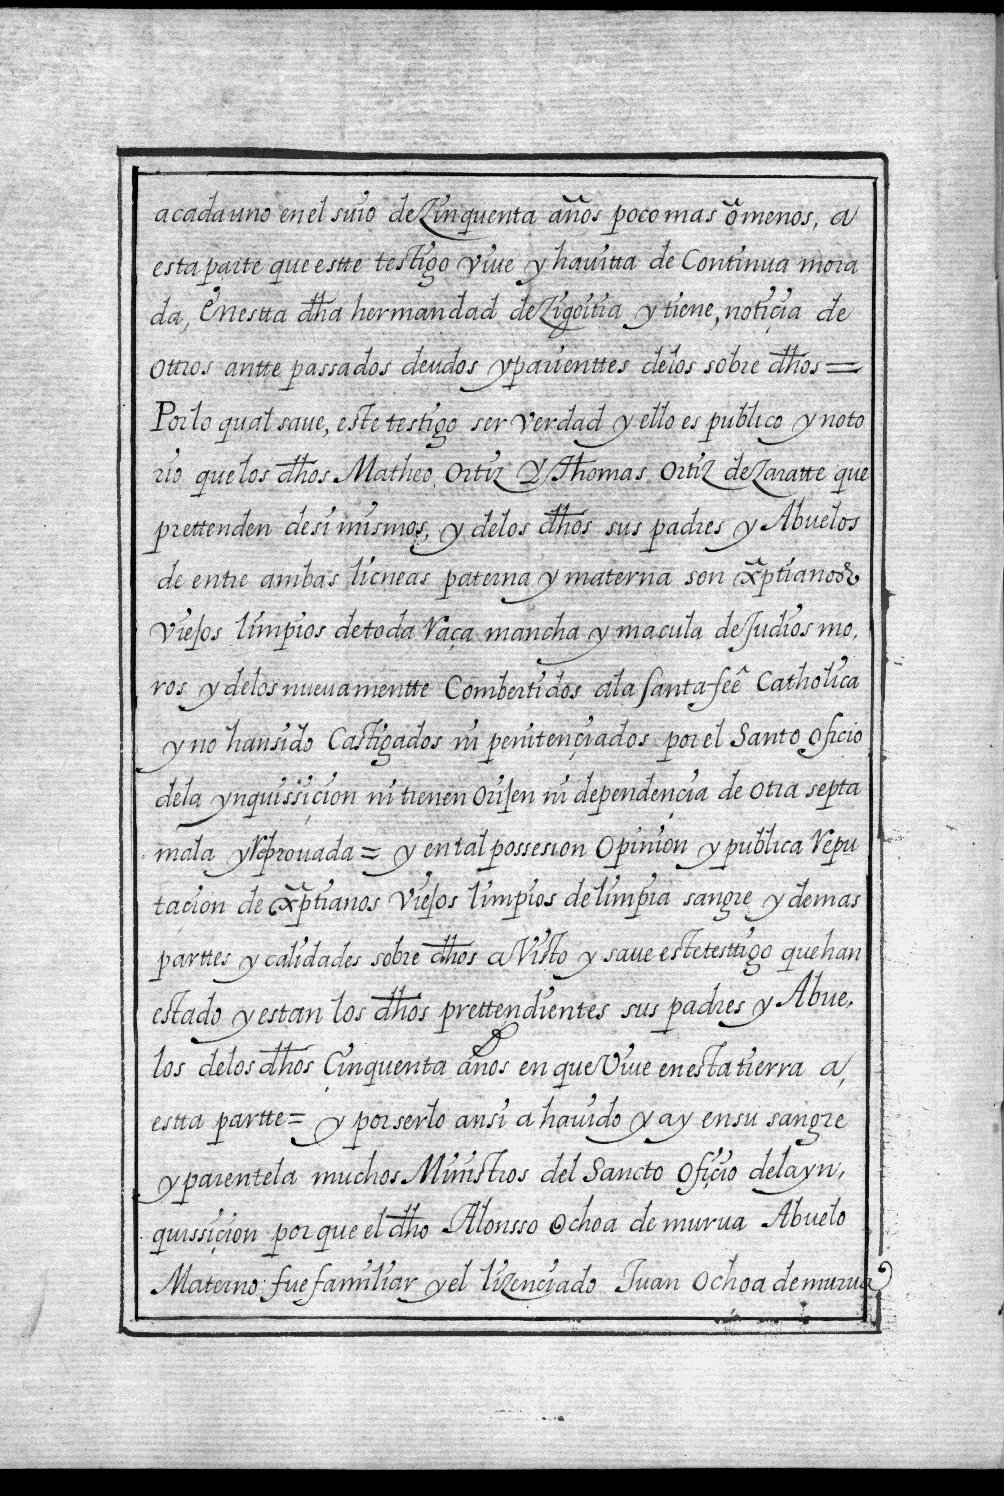 acada uno en el suio de Zinquenta años poco mas o menos, a
esta parte que estte testigo vive y havitta de Continua mora
da, Enestta dha hermandad de Zigoitia y tiene, notiçia de
ottros antte passados deudos y parienttes delos sobre dhos =
Porlo qual saue, este testigo ser verdad y ello es publico y noto
rio que los dhos Matheo Ortiz Y Thomas Ortiz de Zaratte que
prettenden de si mismos, y delos dhos sus padres y Abuelos
de entre ambas licneas paterna y materna son xptianos
Viejos limpios de toda Raça mancha y macula de Judios mo,
ros y delos nuevamentte Combertidos ala santa feê Catholica
y no hansido Castigados ni penitençiados por el Santo oficio
dela ynquissiçion ni tienen orijen ni dependençia de otra septa
mala y Reprouada = y en tal possesion Opinion y publica Repu
taçion de xptianos Viejos limpios de limpia sangre y demas
parttes y calidades sobre dhos a Visto y saue este testtigo que han
estado y estan los dhos prettendientes sus padres y Abue,
los delos dhos Cinquenta años en que Viue en esta tierra a,
estta partte = y por serlo ansi a hauido y ay en su sangre
y parentela muchos Ministros del Sancto Ofiçio dela yn,
quissiçion por que el dho Alonsso Ochoa de murua Abuelo
Materno fue familiar y el lizençiado Juan Ochoa de murua